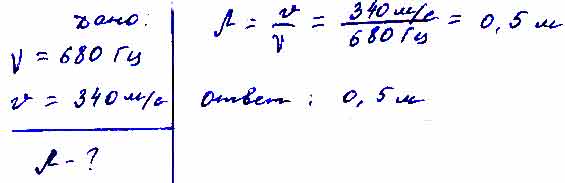 Дано:
ν = 680 Гц
v = 340 м/с
λ - ?
λ = v/ν = 340 м/с / 680 Гц = 0,5 м
ответ: 0,5 м